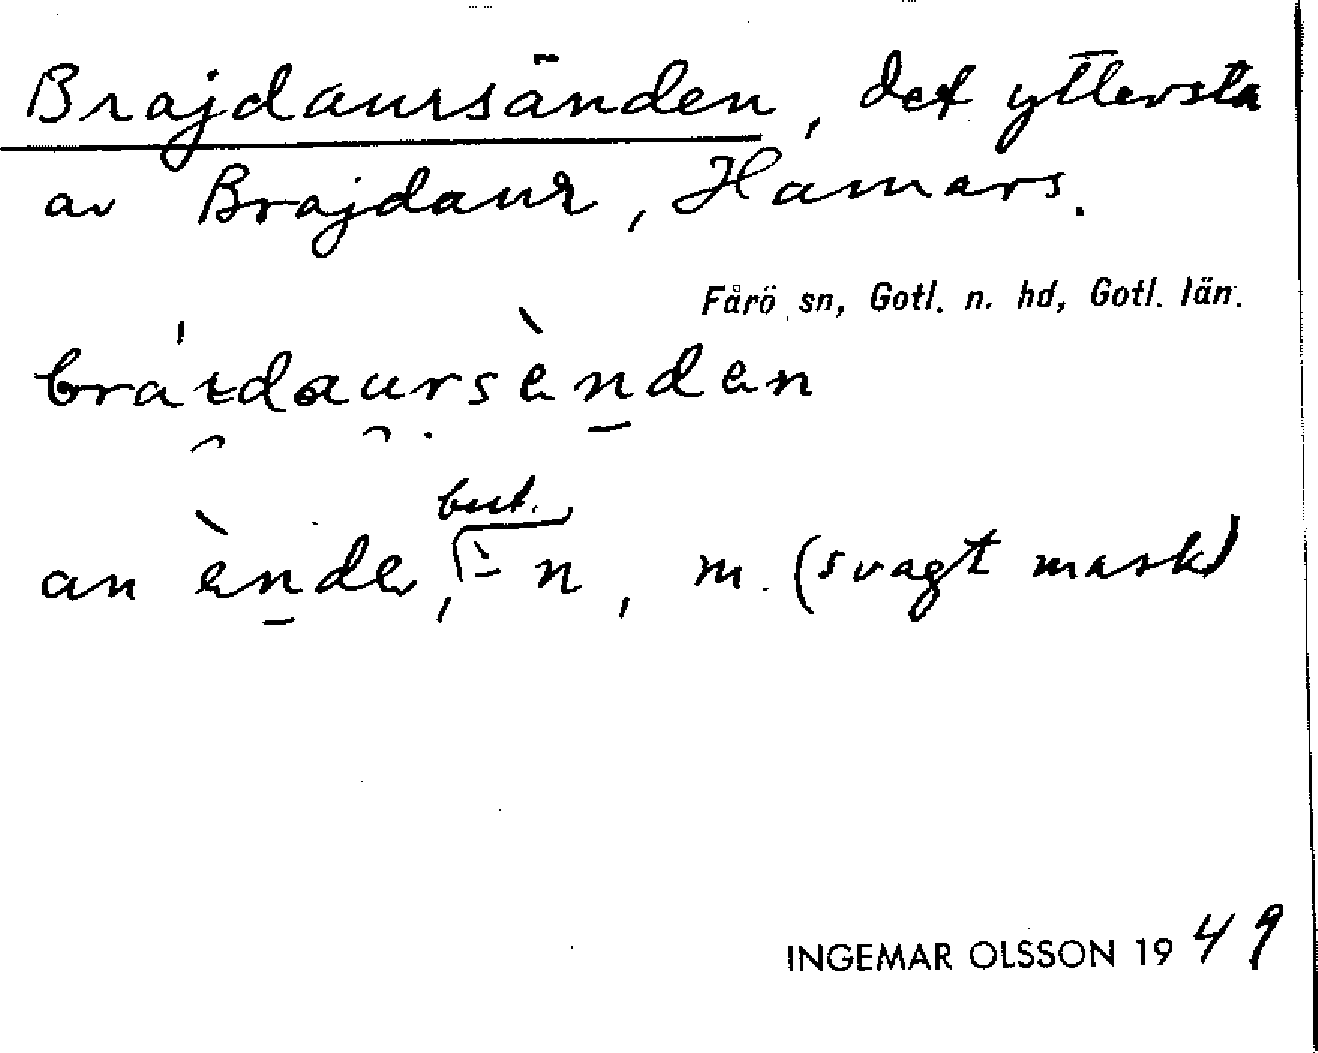 Brajdaursänden, det yttersta
av Brajdaur, Hamars.
Fårö sn, Gotl. n. hd, Gotl. län.
bráɪdaursèn̲dən
an èn̲də, best. (-̀n, m. (svagt mask)
INGEMAR OLSSON 1949